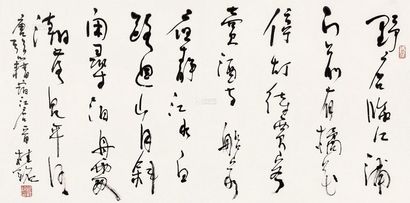 野店临江浦
门前有橘花
停灯待贾客
賣酒与渔家
夜静江水白
路迴山月斜
闲寻泊舟處
潮落见平沙
唐張籍宿江店